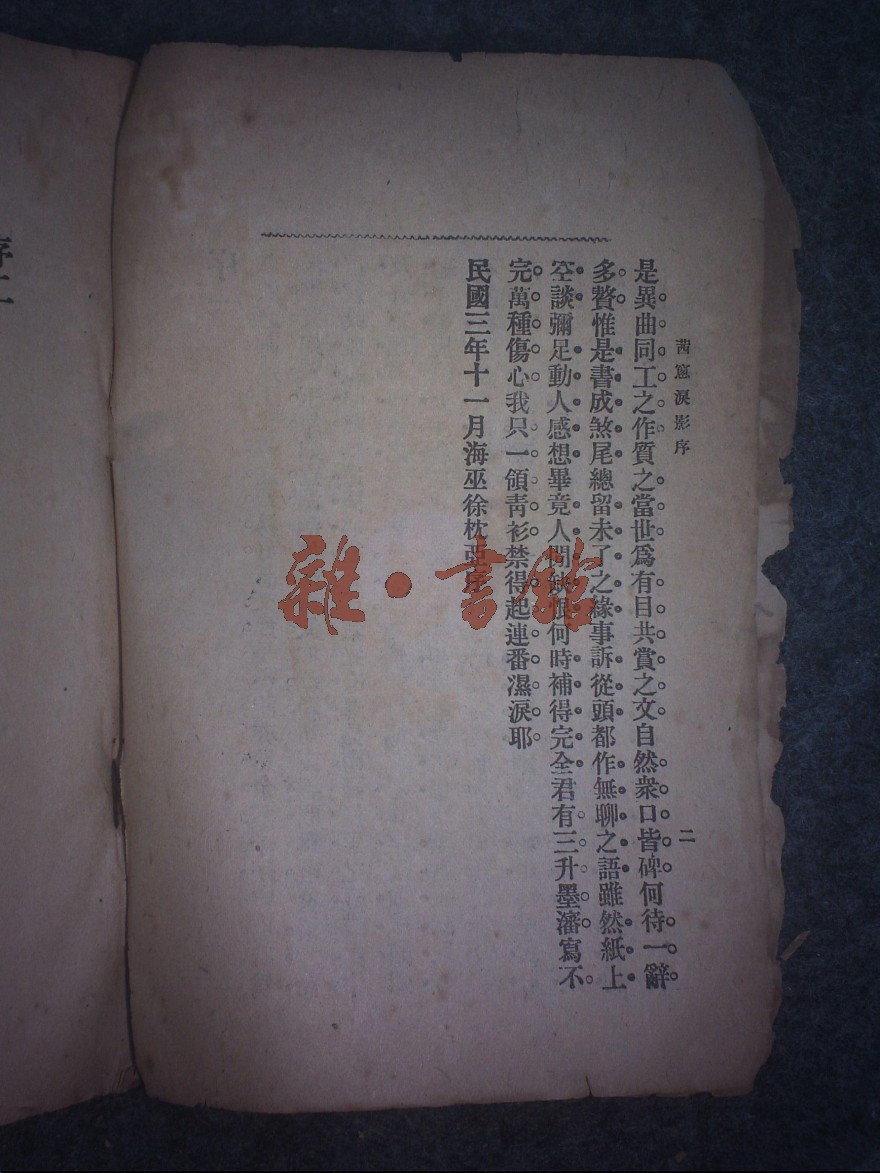 茜窻淚影序
二
是異曲同工之作質之當世爲有目共賞之文自然衆口皆碑何待一辭
多贅惟是書成煞尾總留未了之緣事訴從頭都作無聊之語雖然紙上
空談彌足動人感想畢竟人間缺恨何時補得完全君有三升墨瀋寫不
完萬種傷心我只一領靑衫禁得起連番濕淚耶
民國三年十一月海巫徐枕亞序
雜·書館